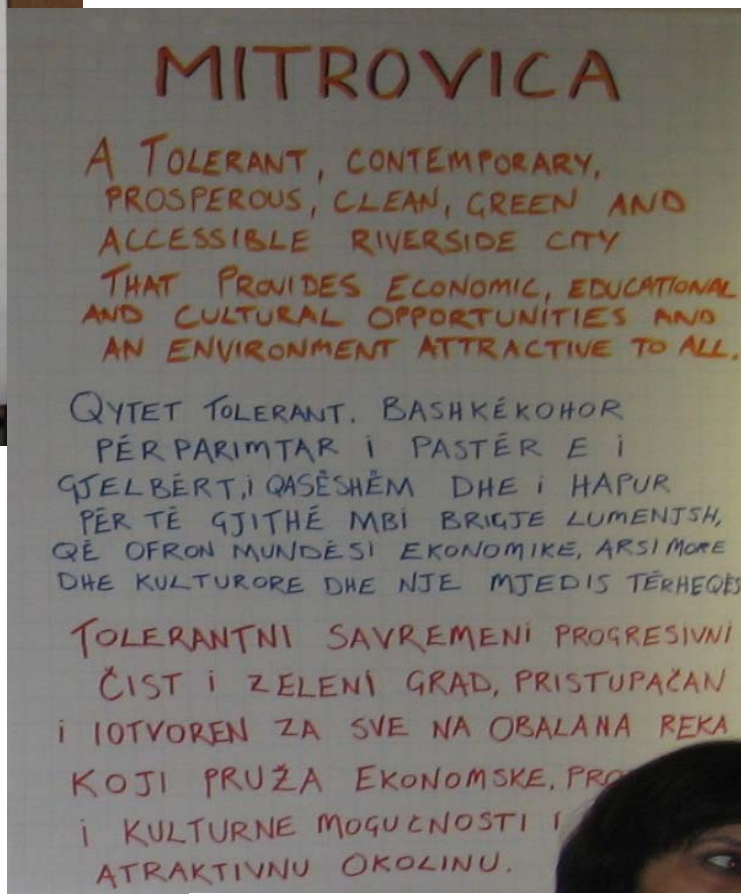 MITROVICA
A TOLERANT, CONTEMPORARY,
PROSPEROUS, CLEAN, GREEN AND
ACCESSIBLE RIVERSIDE CITY
THAT PROVIDES ECONOMIC, EDUCATIONAL
AND CULTURAL OPPORTUNITIES AND
AN ENVIRONMENT ATTRACTIVE TO ALL.
QYTET TOLERANT. BASHKËKOHOR
PËRPARIMTAR i PASTËR E i
GJELBËRT, i QASËSHËM DHE i HAPUR
PËR TË GJITHË MBI BRIGJE LUMENJSH,
QË OFRON MUNDËSI EKONOMIKE, ARSIMORE
DHE KULTURORE DHE NJE MJEDIS TËRHEQËS
TOLERANTNI SAVREMENI PROGRESIVNI
ČIST i ZELENI GRAD, PRISTUPAČAN
i IOTVOREN ZA SVE NA OBALANA REKA
KOJI PRUŽA EKONOMSKE,
i KULTURNE MOGUĆNOSTI I
ATRAKTIVNU OKOLINU.